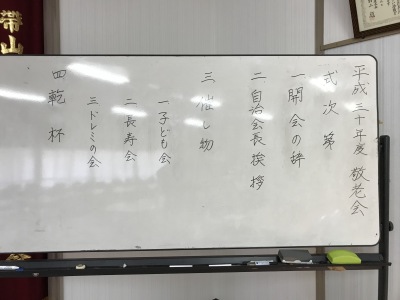 平成三十年度 敬老会
式次第
一 開会の辞
二 自治会長挨拶
三 催し物
一 子ども会
二 長寿会
三 ドレミの会
四 乾杯
帯山